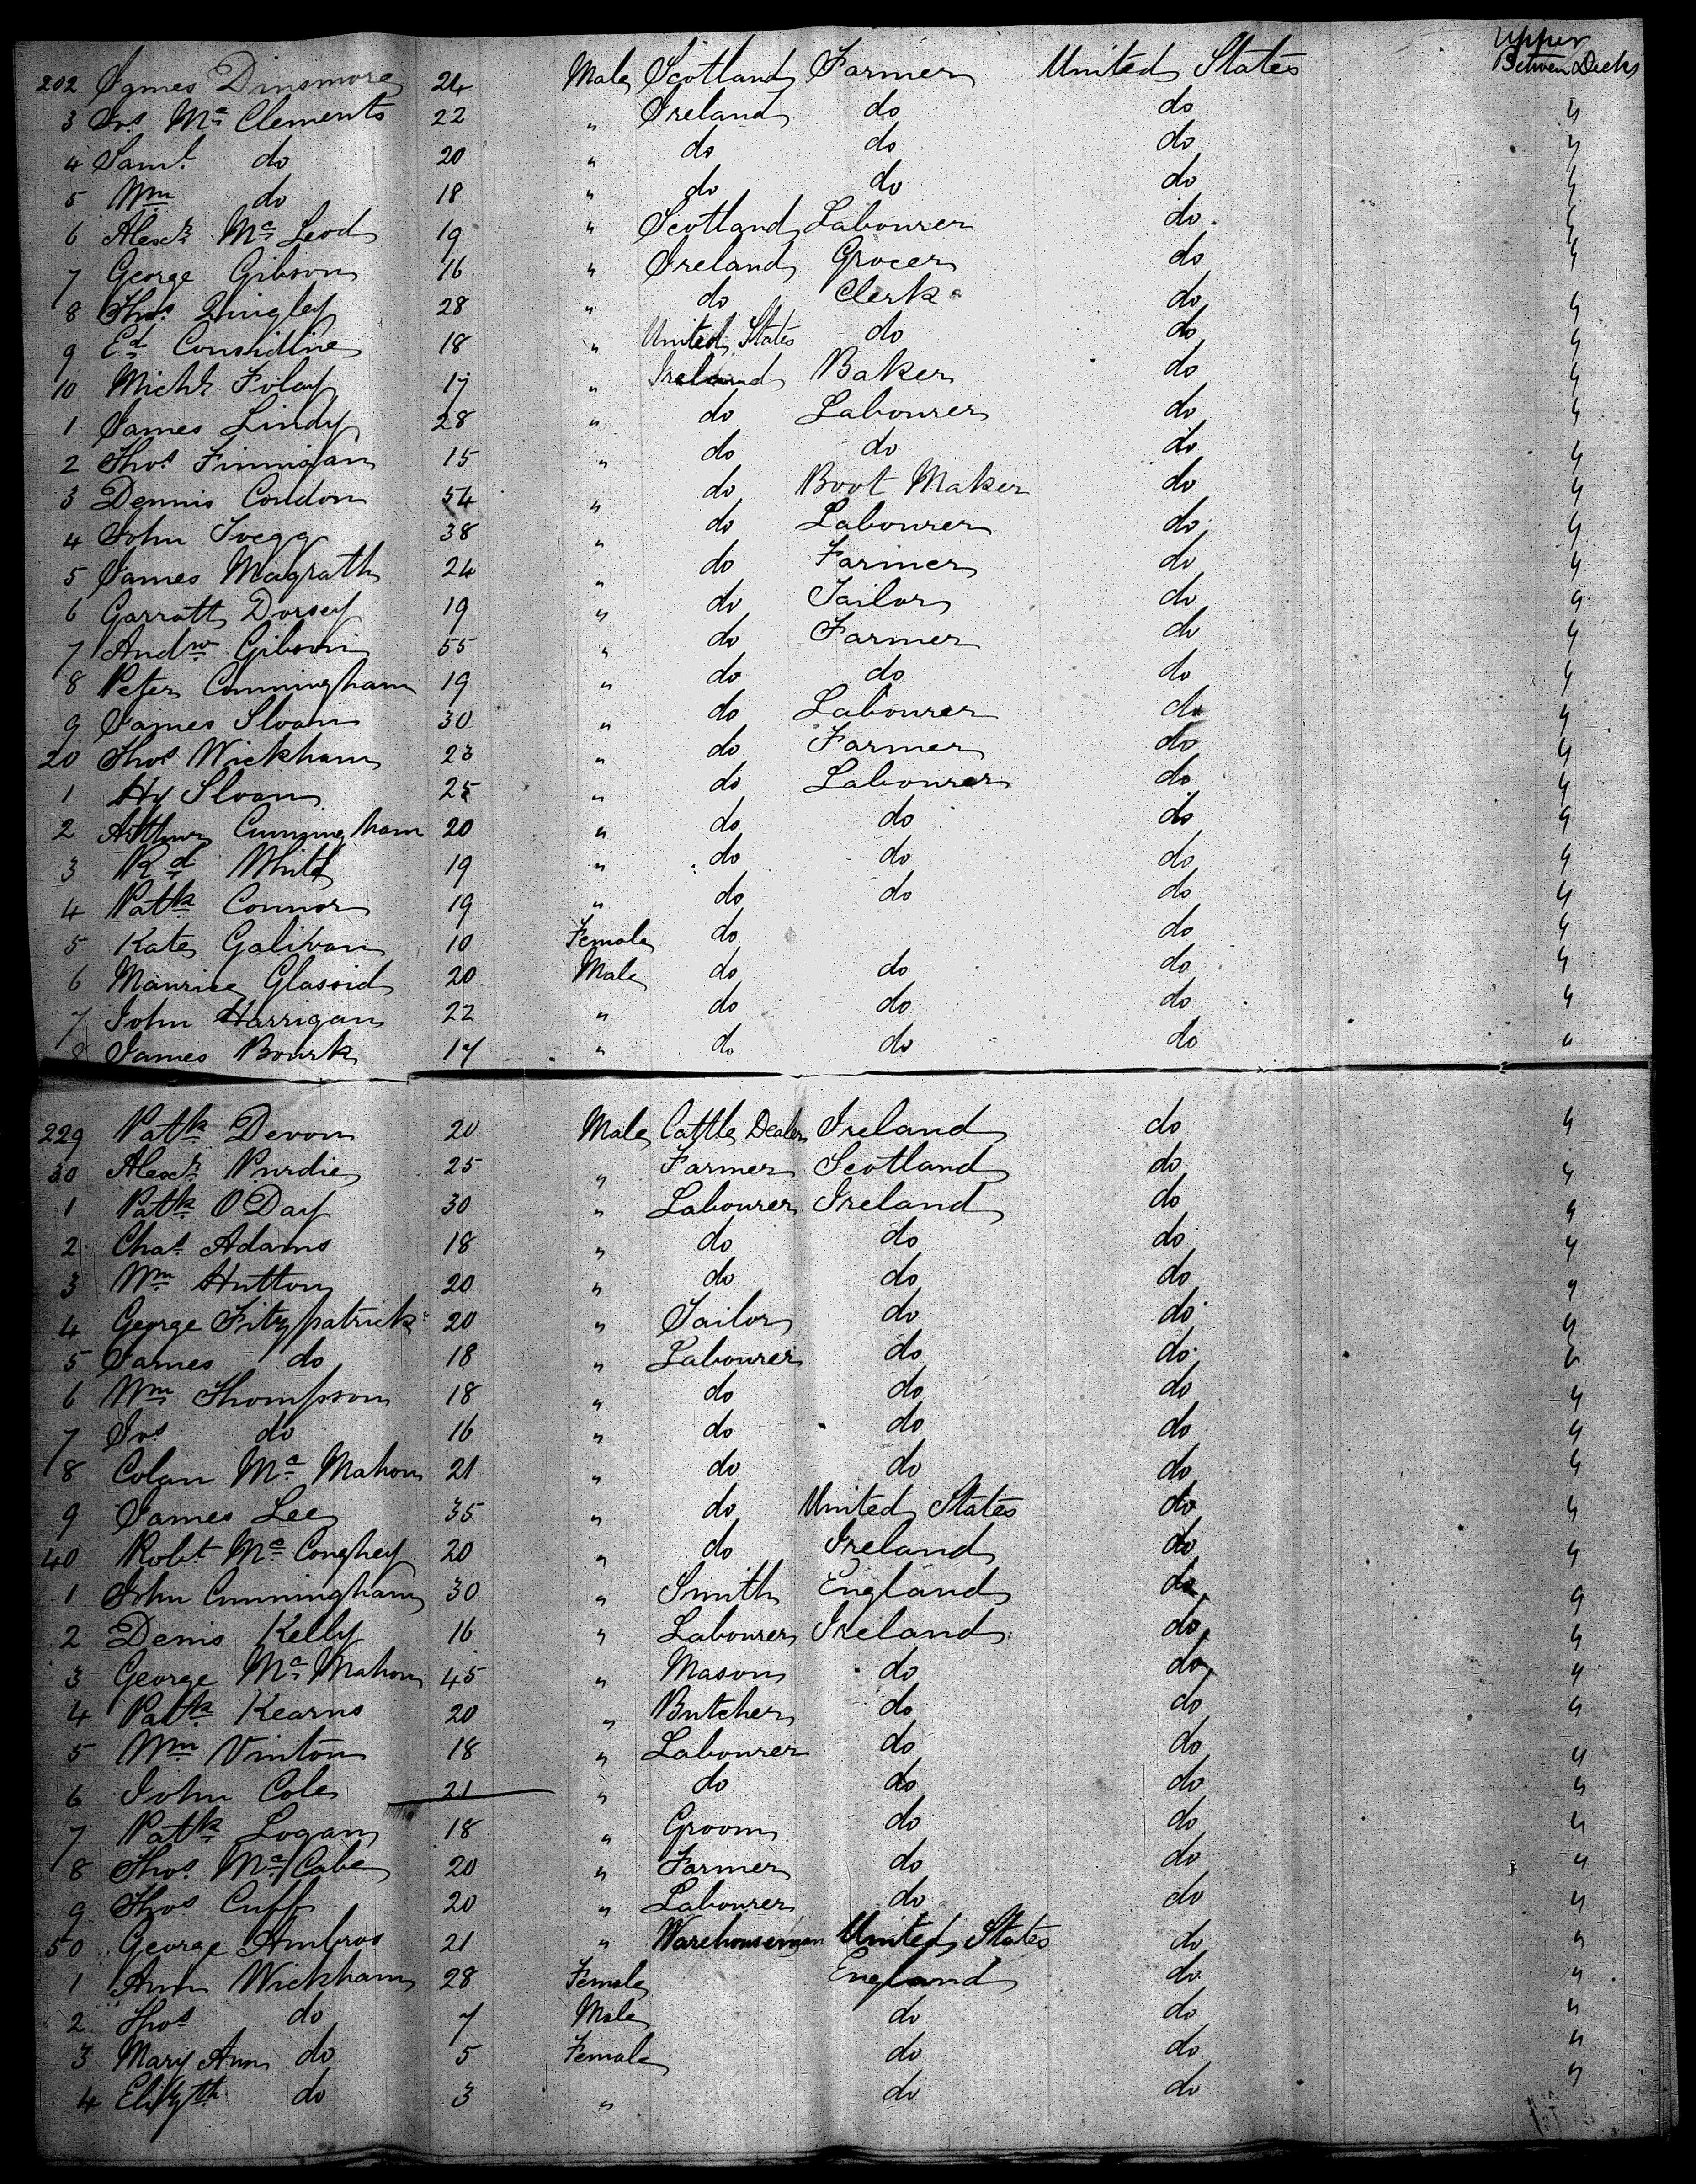 Upper
202 James Dinsmore 24 Male Scotland Farmer United States Between Decks
3 Jos Mc Clements 22 " Ireland do do "
4 Saml do 20 " do do do "
5 Wm do 18 " do do do "
6 Alexr Mc Leod 19 " Scotland Labourer do "
7 George Gibson 16 " Ireland Grocer do "
8 Thos Quigley 28 " do Clerk do "
9 Ed Considine 18 " United States do do "
10 Michl Foley 17 " Ireland Baker do "
1 James Lindy 28 " do Labourer do "
2 Thos Finnigan 15 " do do do "
3 Dennis Condon 54 " do Boot Maker do "
4 John 38 " do Labourer do "
5 James Magrath 24 " do Farmer do "
6 Garratt Dorsey 19 " do Tailor do "
7 Andw Gibson 55 " do Farmer do "
8 Peter Cunningham 19 " do do do "
9 James Sloan 30 " do Labourer do "
20 Thos Wickham 23 " do Farmer do "
1 Hy Sloan 25 " do Labourer do "
2 Arthur Cunningham 20 " do do do "
3 Rd White 19 " do do do "
4 Patk Connor 19 " do do do "
5 Kate Galivan 10 Female do do "
6 Maurice Glassid 20 Male do do do "
7 John Harrigan 22 " do do do "
8 James Bourk 17 " do do do "
229 Patk Devon 20 Male Cattle Dealer Ireland do "
30 Alexr Purdie 25 " Farmer Scotland do "
1 Patk O'Day 30 " Labourer Ireland do "
2 Chas Adams 18 " do do do "
3 Wm Hutton 20 " do do do "
4 George Fitzpatrick 20 " Tailor do do "
5 James do 18 " Labourer do do "
6 Wm Thompson 18 " do do do "
7 Jos do 16 " do do do "
8 Colan Mc Mahon 21 " do do do "
9 James Lee 35 " do United States do "
40 Robt Mc Conghey 20 " do Ireland do "
1 John Cunningham 30 " Smith England do "
2 Denis Kelly 16 " Labourer Ireland do "
3 George Mc Mahon 45 " Mason do do "
4 Patk Kearns 20 " Butcher do do "
5 Wm Vinton 18 " Labourer do do "
6 John Cole 21 " do do do "
7 Patk Logan 18 " Groom do do "
8 Thos Mc Cabe 20 " Farmer do do "
9 Thos Cuff 20 " Labourer do do "
50 George Ambros 21 " Warehouseman United States do "
1 Ann Wickham 28 Female England do "
2 Thos do 7 Male do do "
3 Mary Ann do 5 Female do do "
4 Elizth do 3 " do do "